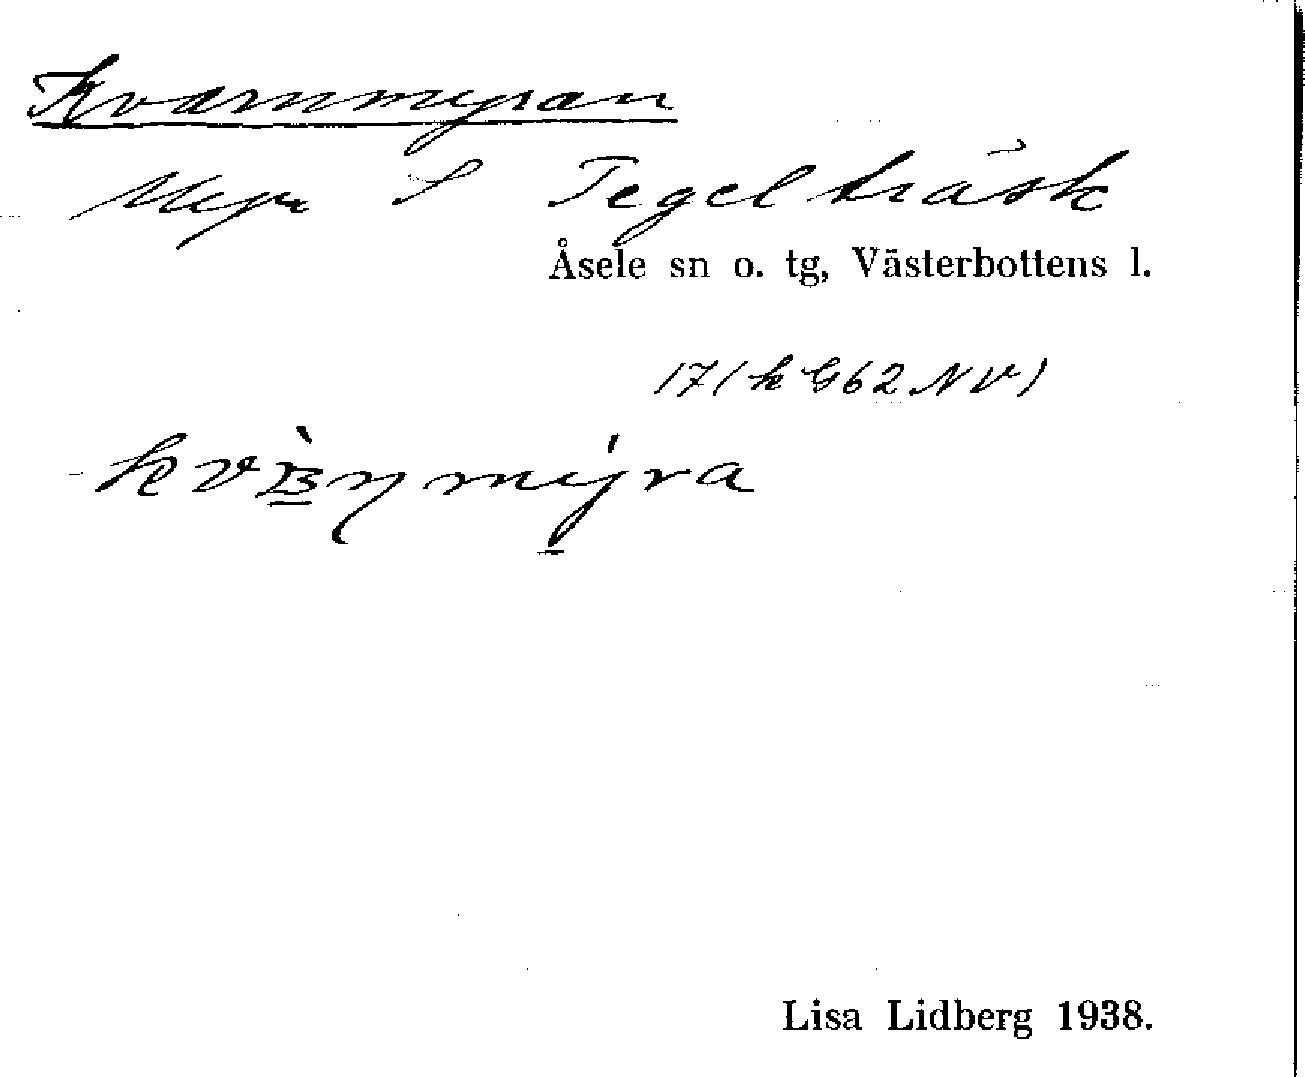 Kvarnmyran
Myr S Tegelträsk
Åsele sn o. tg, Västerbottens l.
17 (k G62 NV)
Lisa Lidberg 1938.